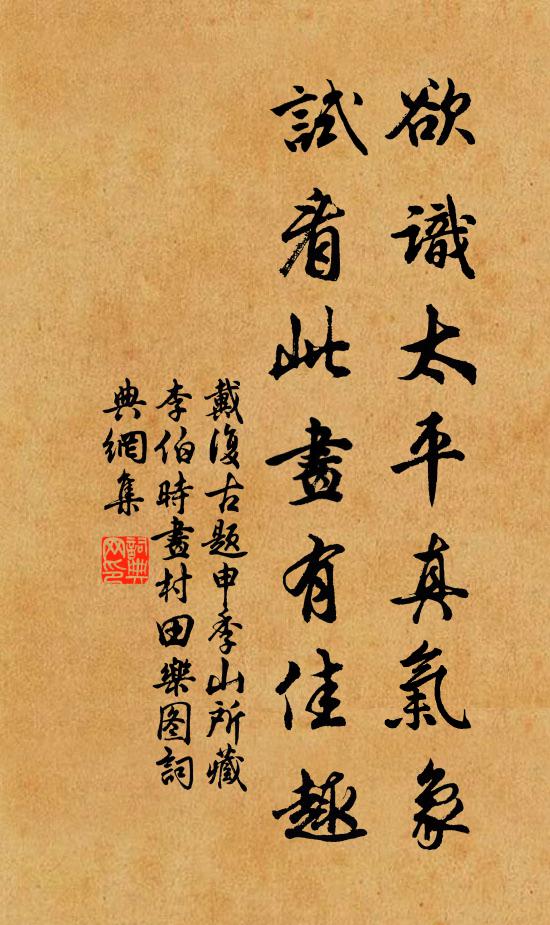 欲識太平真氣象
試看此畫有佳趣
戴復古題申季山所藏
李伯時畫村田樂图詞
典網集
詞典網印